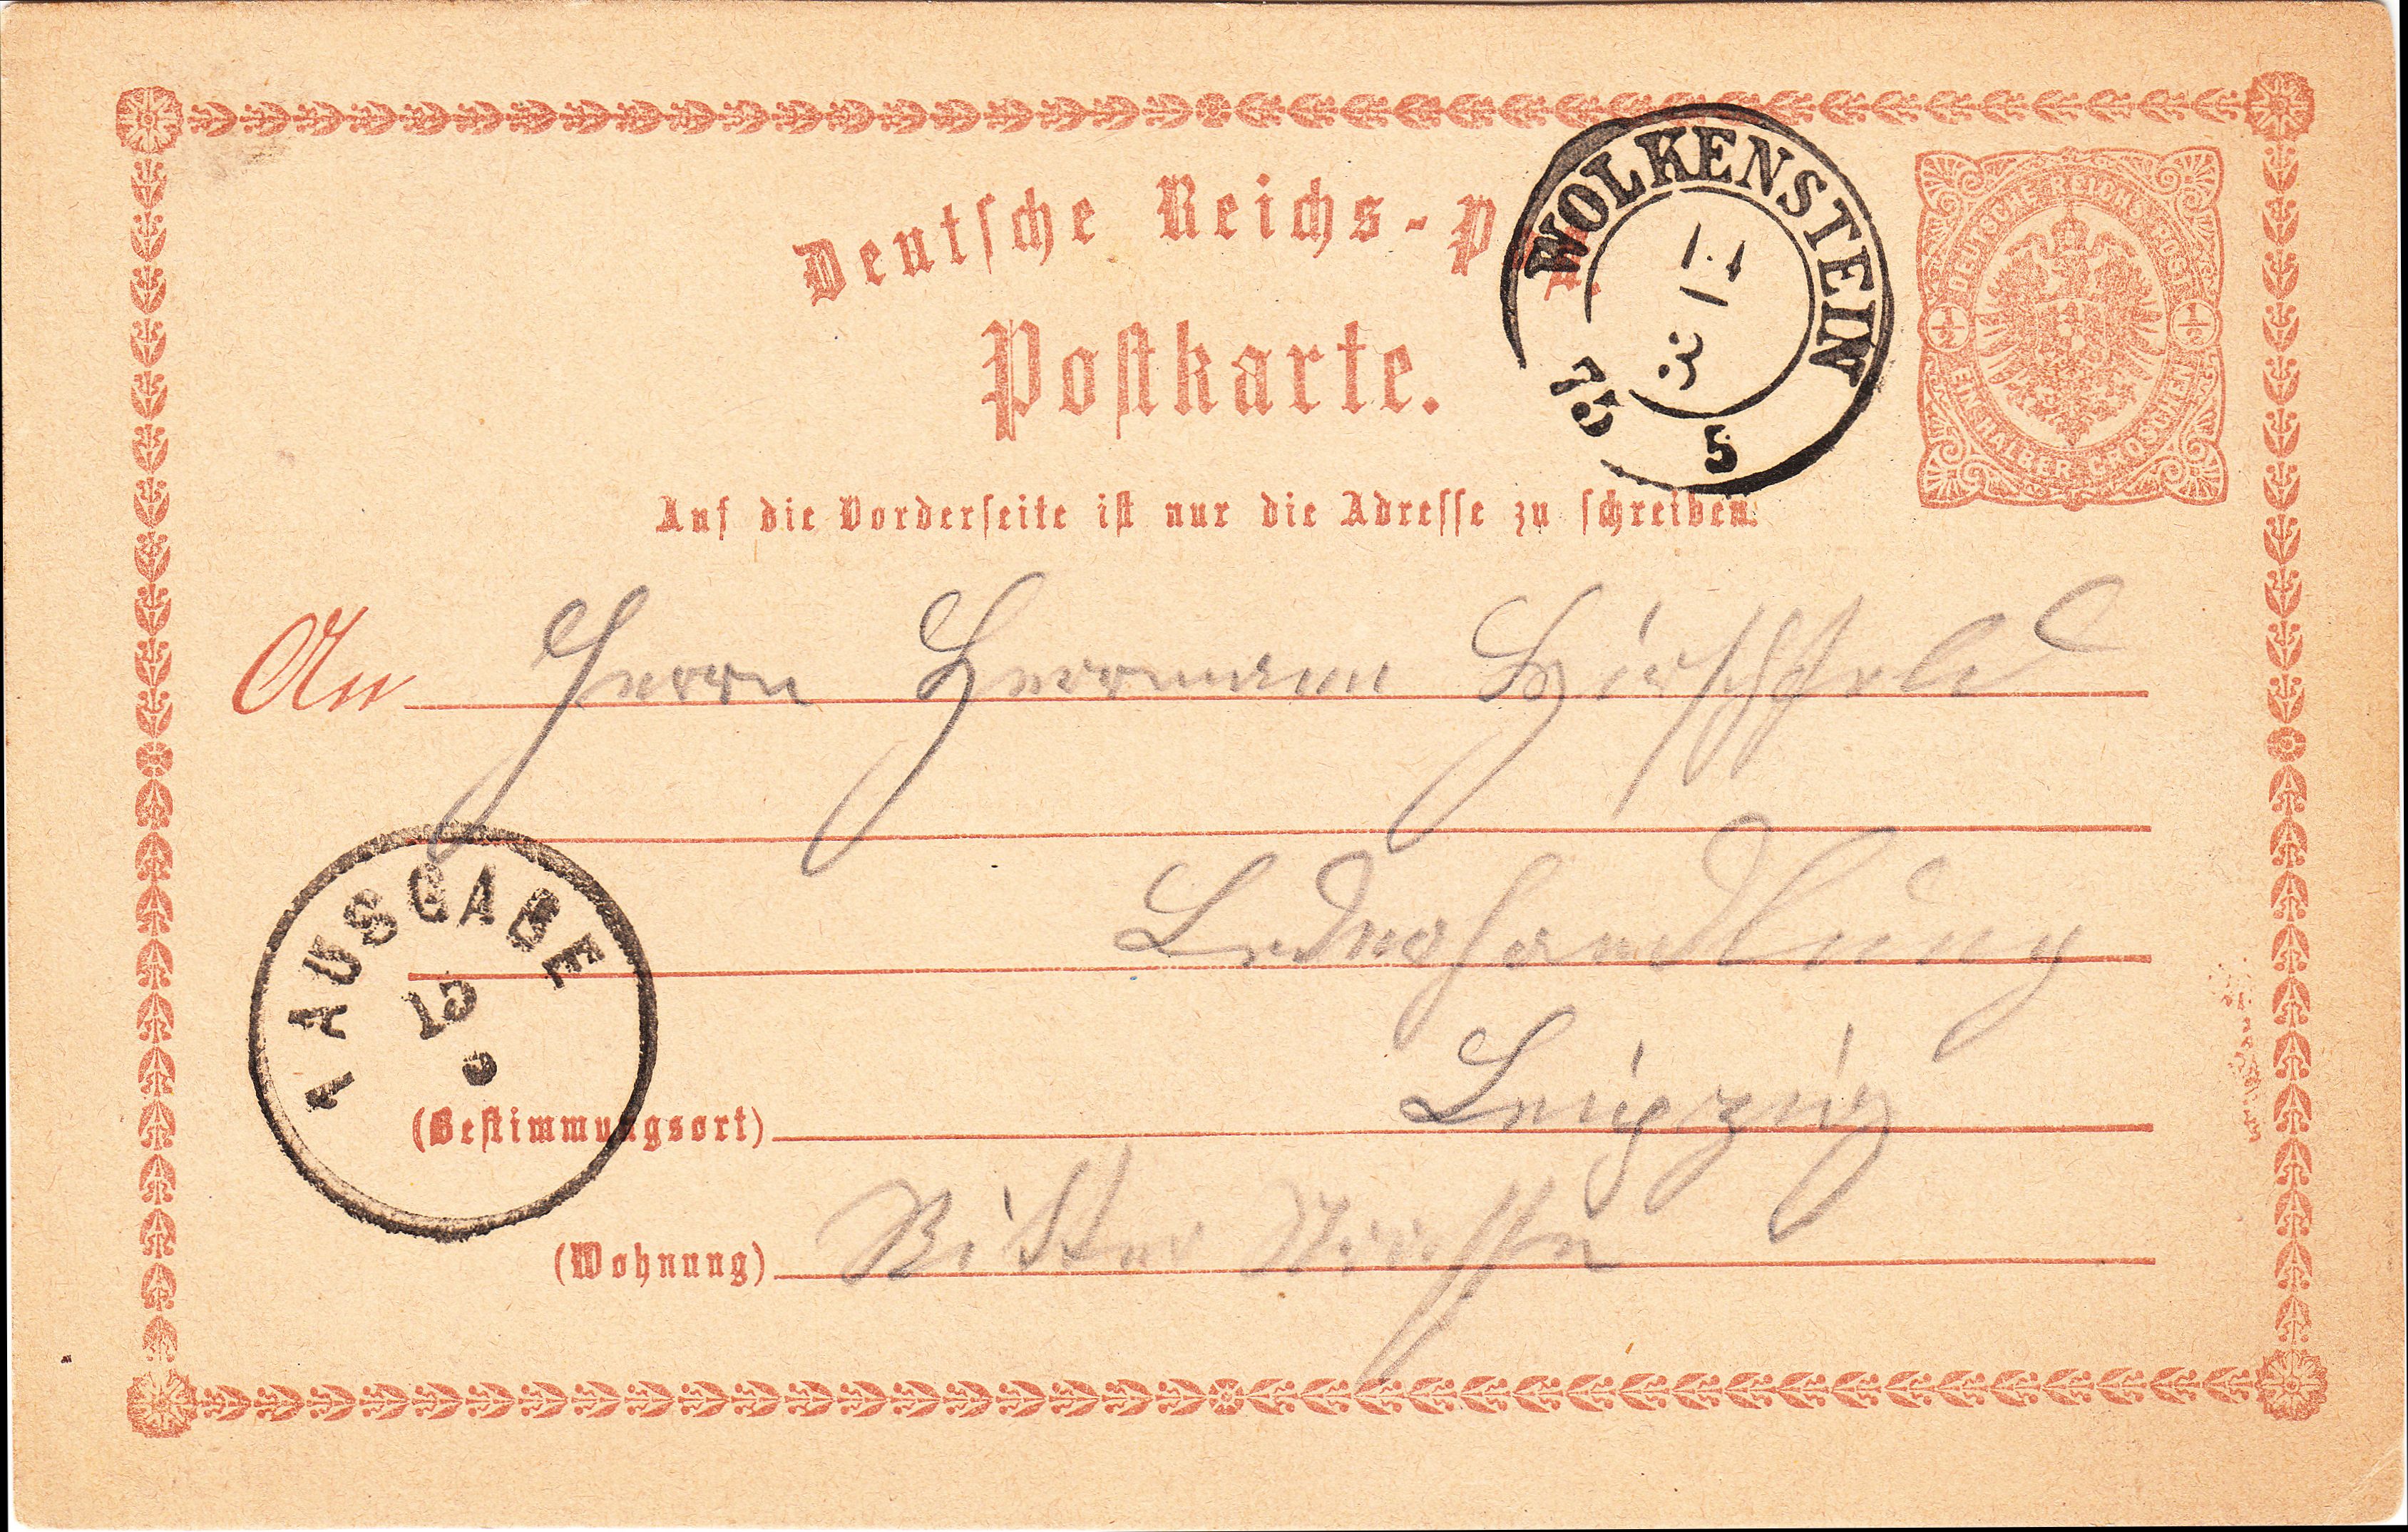 Deutsche Reichs-P
Postkarte.
WOLKENSTEIN
75
5
DEUTSCHE REICHS POST
1/2 1/2
EIN HALBER GROSCHEN
Auf die Vorderseite ist nur die Adresse zu schreiben.
An Herrn Herrmann Hirschfeld
Lederhandlung
AUSGABE
13
Leipzig
(Bestimmungsort)
(Wohnung) Ritter Strasse